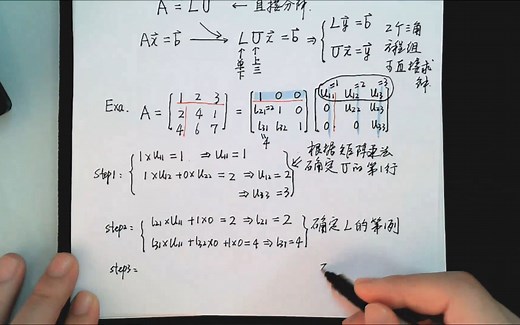 A = LU ← 直接分解
A\vec{x} = \vec{b} → L U \vec{x} = \vec{b} ⇒ { L\vec{y} = \vec{b}
U\vec{x} = \vec{y}
单下
上三
2个三角
方程组
可直接求
解
Exa. A = [1 2 3; 2 4 1; 4 6 7] = [1 0 0; l21=2 1 0; l31 l32 1] [u11=1 u12=2 u13=3; 0 u22 u23; 0 0 u33]
4
step1: { 1×u11 = 1 ⇒ u11 = 1
1×u12 + 0×u22 = 2 ⇒ u12 = 2
⇒ u13 = 3
根据矩阵乘法
确定U的第1行
step2: { l21×u11 + 1×0 = 2 ⇒ l21 = 2
l31×u11 + l32×0 + 1×0 = 4 ⇒ l31 = 4
确定L的第1列
step3: